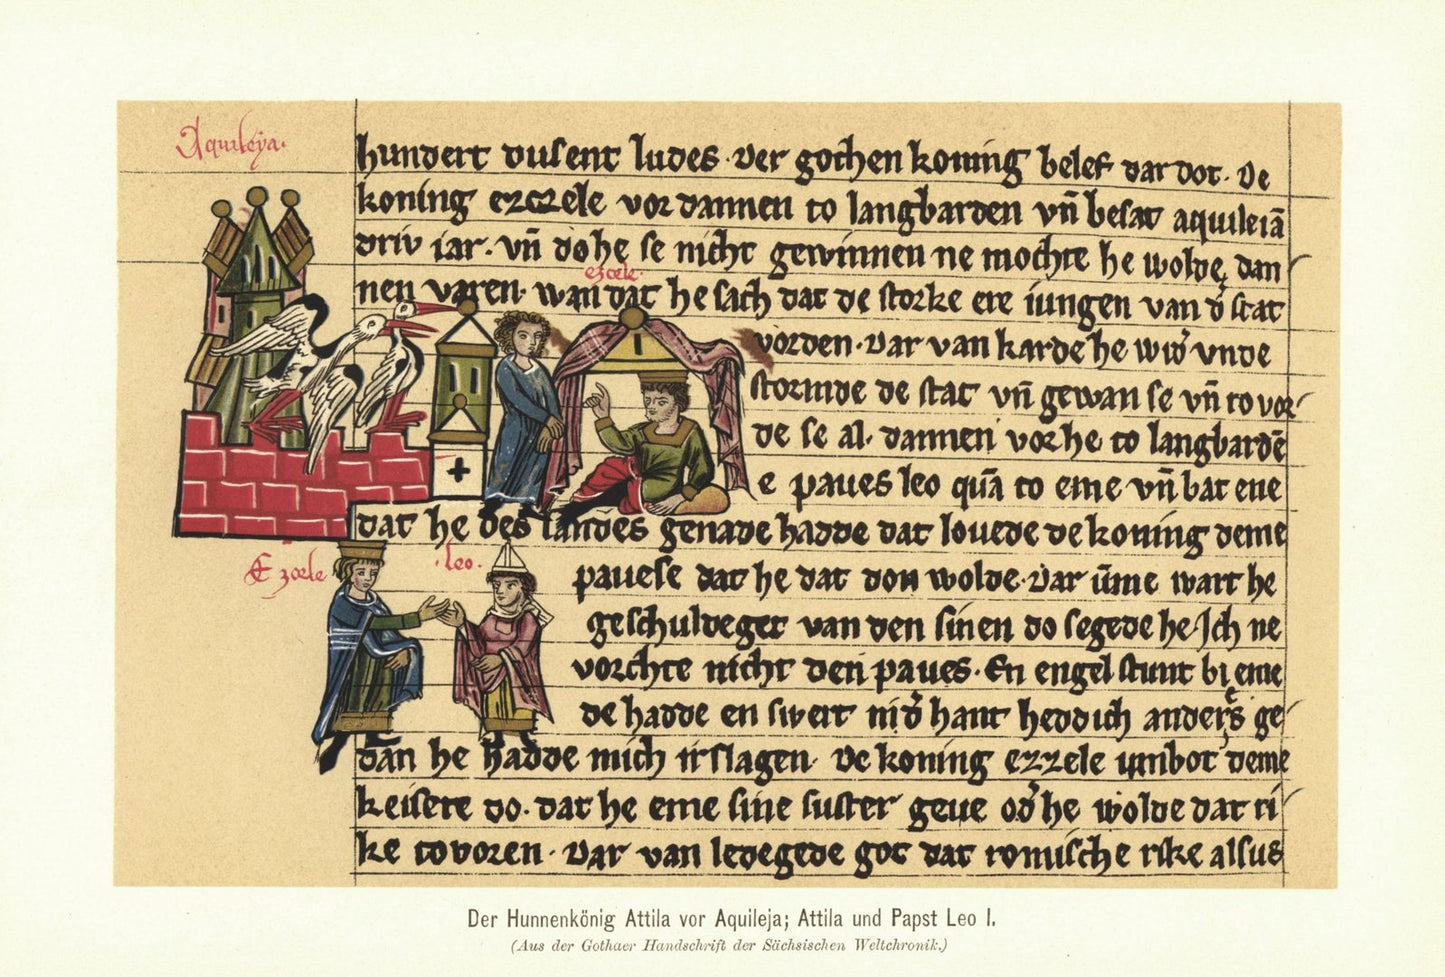 Aquileya.
hundert dusent ludes. Der gothen koning belef dar dot. De
koning ezczele vor dannen to langbarden vn̄ besat aquileiā
driv iar. vn̄ do he se nicht gewinnen ne mochte he wolde dan
ezcele.
nen varen. wan dat he sach dat de storke ere iungen van d̓ stat
vorden. Dar van karde he wid̓ vnde
stormde de stat vn̄ gewan se vn̄ to vor
de se al. dannen vor he to langbardē
e paves leo quā to eme vn̄ bat ene
dat he des landes genade hadde dat lovede de koning deme
Ezcele
.leo.
pavese dat he dat don wolde. Dar ūme wart he
geschuldeget van den sinen do segede he. Ich ne
vorchte nicht den paves. En engel stunt bi eme
de hadde en swert nid̓ hant hedd ich anders ge
dan he hadde mich irslagen. De koning ezzele umbot deme
keisere do. dat he eme sine suster geve od̓ he wolde dat ri
ke tovoren. Dar van ledegede got dat romische rike alsus
Der Hunnenkönig Attila vor Aquileja; Attila und Papst Leo I.
(Aus der Gothaer Handschrift der Sächsischen Weltchronik.)